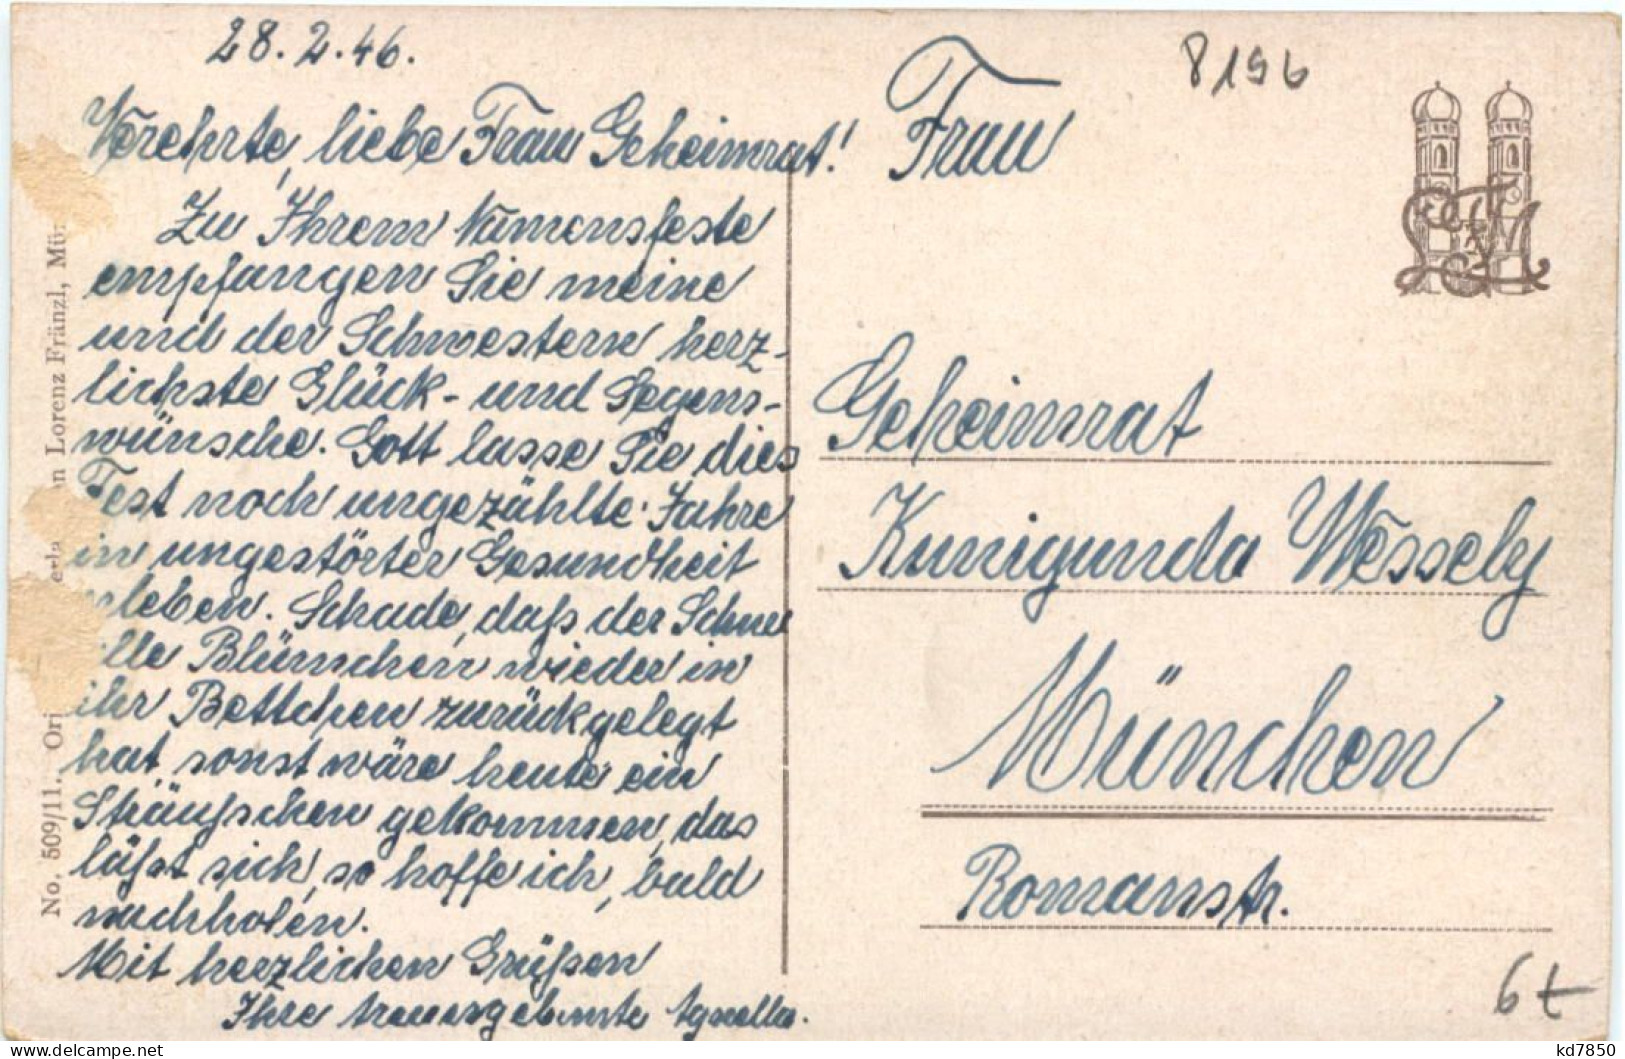 28.2.46.
Verehrte, liebe Frau Geheimrat!
Zu Ihrem Namensfeste
empfangen Sie meine
und der Schwestern herz-
lichste Glück- und Segens-
wünsche. Gott lasse Sie dies
Fest noch ungezählte Jahre
in ungestörter Gesundheit
erleben. Schade, daß der Schnee
alle Blümchen wieder in
ihr Bettchen zurückgelegt
hat sonst wäre heute ein
Sträußchen gekommen, das
läßt sich, so hoffe ich, bald
nachholen.
Mit herzlichen Grüßen
Ihre treuergebenste Agnella.
8196
Frau
Geheimrat
Kunigunda Wessely
München
Romanstr.
6t
No. 509/11. Ori
n Lorenz Fränzl, Mü
LFM
kd7850